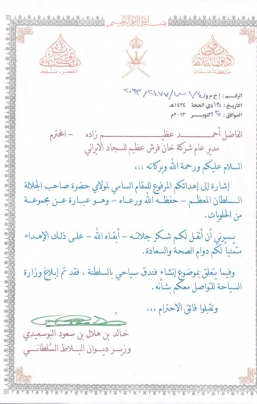 الرقم:
التاريخ: ٢٥ ذي الحجة ١٤٣٤هـ
الموافق: ٣٠ أكتوبر ٢٠١٣م
الفاضل أحمد عظيم زاده
مدير عام شركة خان فرش عظيم للسجاد الإيراني - المحترم
السلام عليكم ورحمة الله وبركاته ...
إشارة إلى إهدائكم المرفوع للمقام السامي لمولاي حضرة صاحب الجلالة
السلطان المعظم - حفظه الله ورعاه - وهو عبارة عن مجموعة من
الحلويات.
يسرني أن أنقل لكم شكر جلالته - أبقاه الله - على ذلك الإهداء
متمنياً لكم دوام الصحة والسعادة.
وفيما يتعلق بموضوع إنشاء فندق سياحي بالسلطنة، فقد تم إبلاغ وزارة
السياحة للتواصل معكم بشأنه.
وتقبلوا فائق الاحترام ...
خالد بن هلال بن سعود البوسعيدي
وزير ديوان البلاط السلطاني